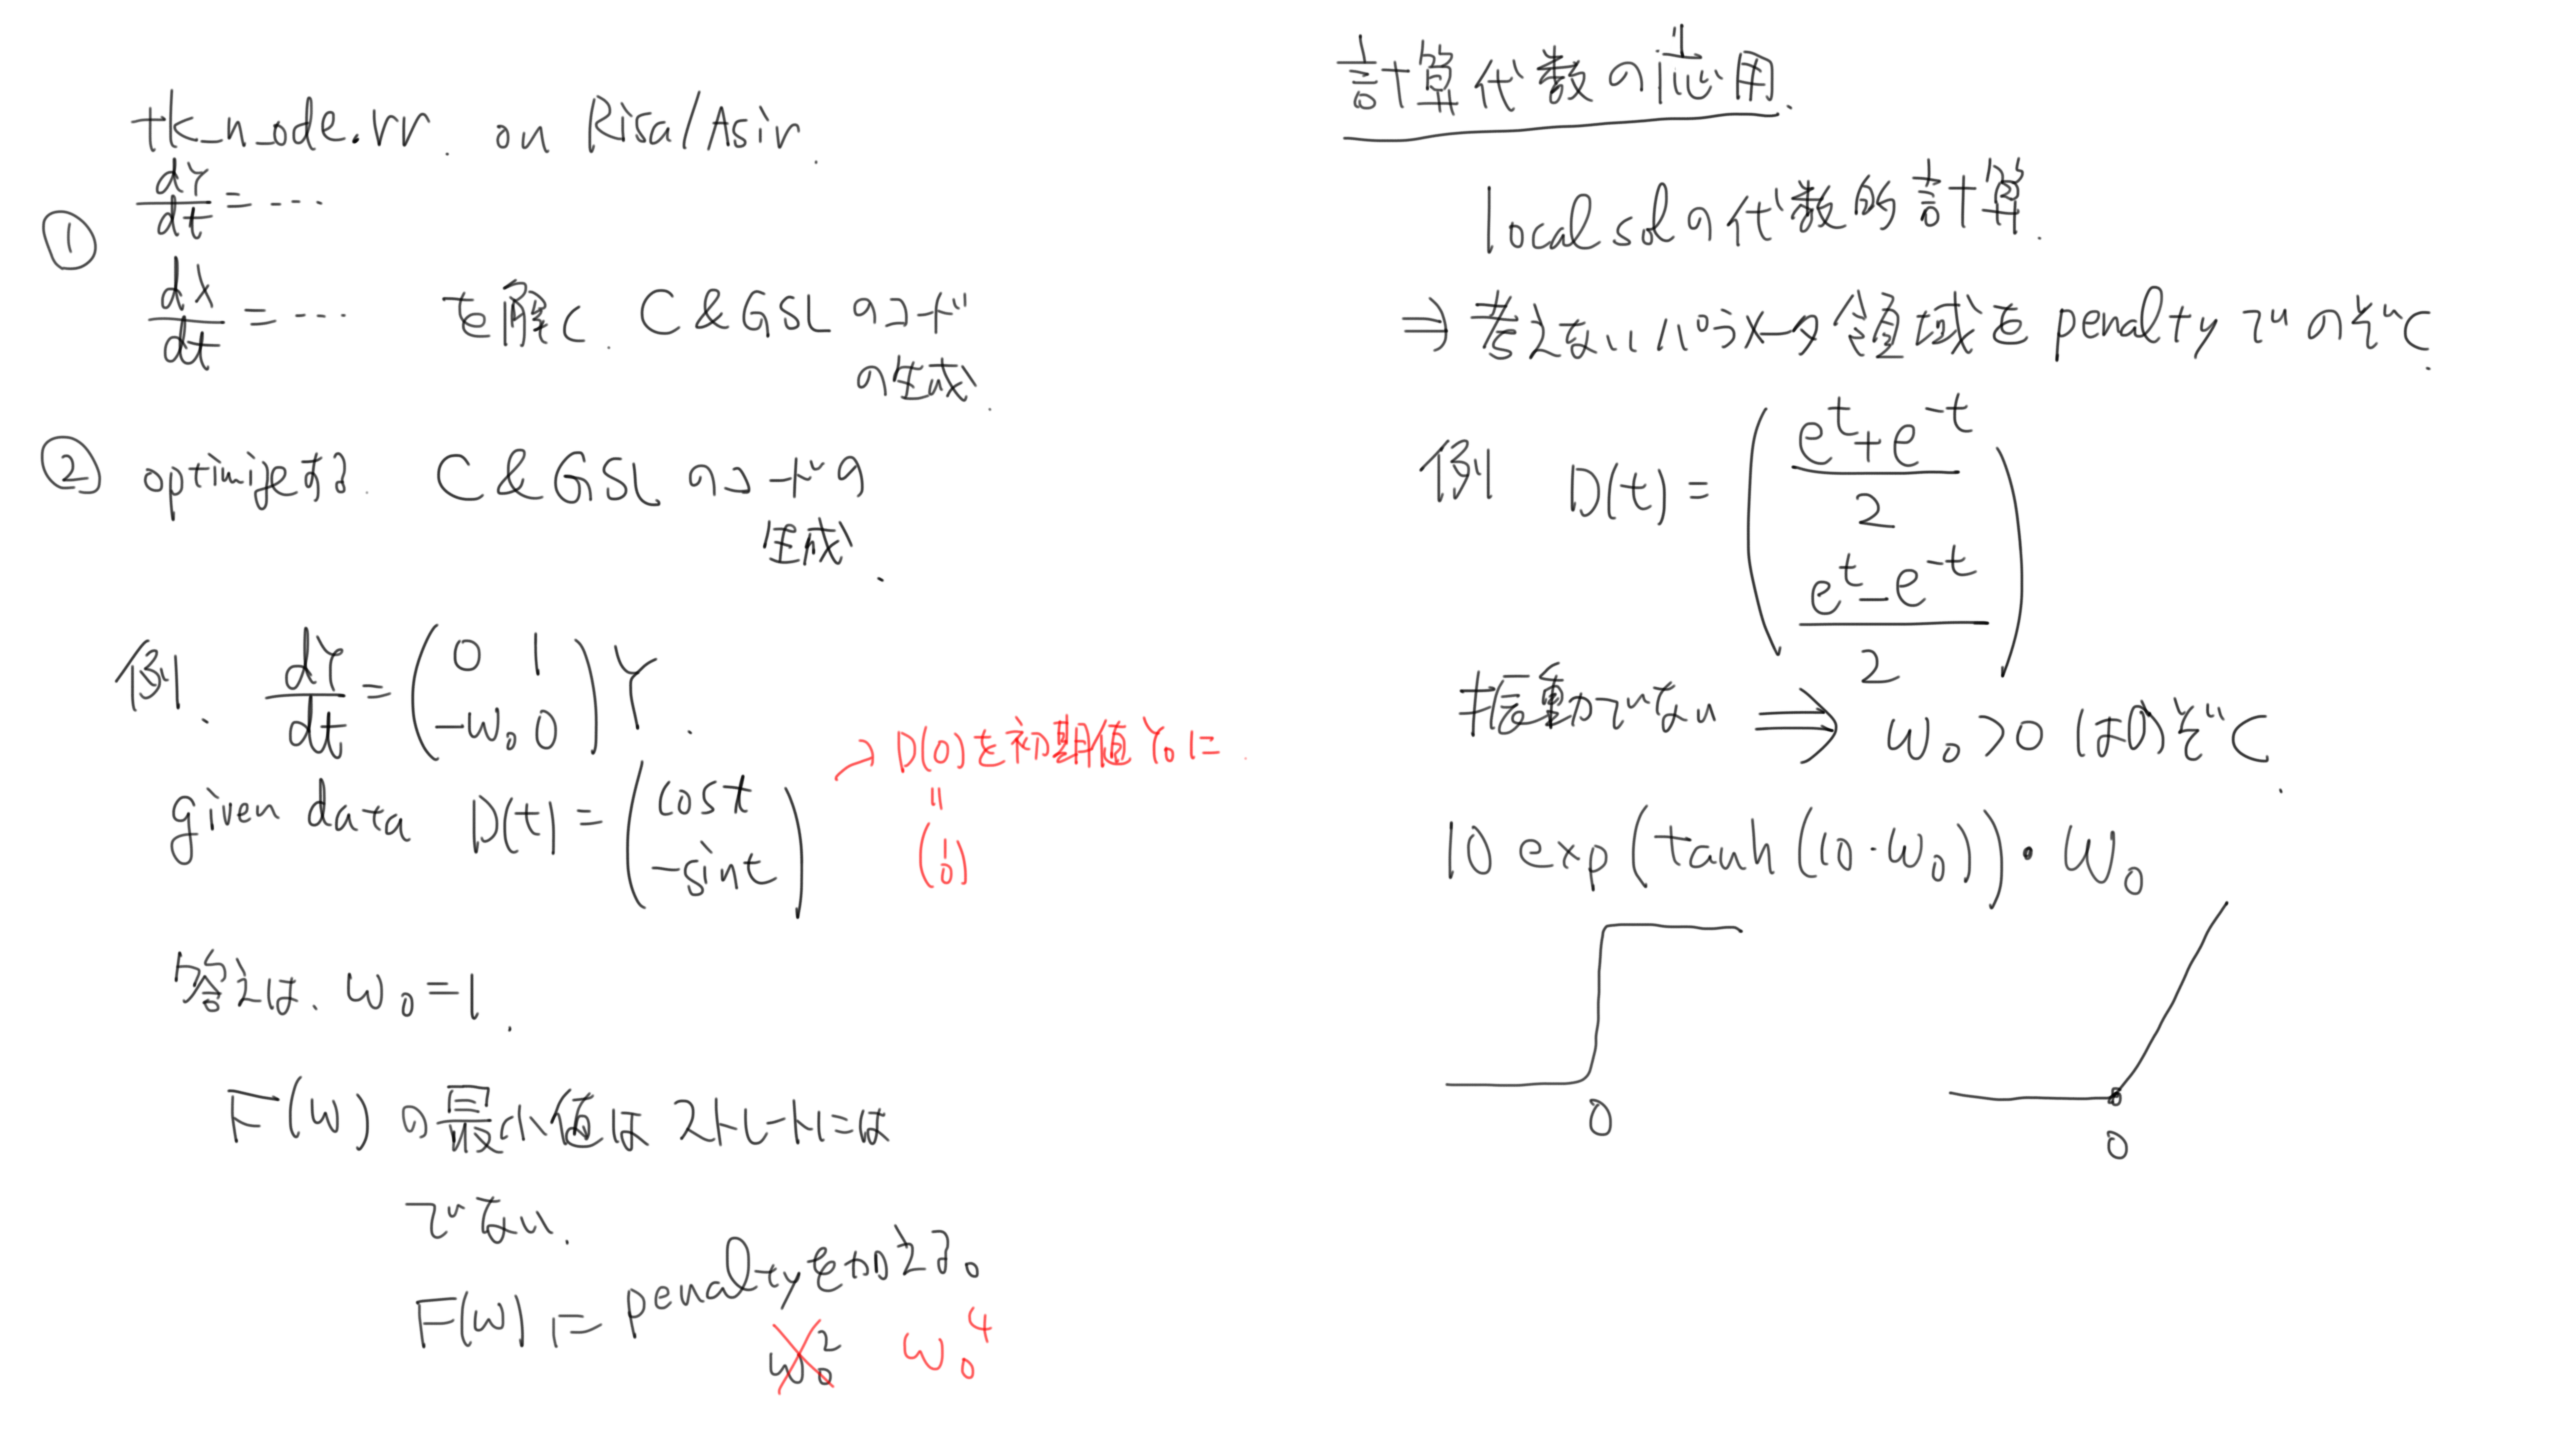 tk_n_ode.rr. on Risa/Asir.
① dY/dt = ...
dX/dt = ... を解く. C & GSL のコード
の生成.
② optimizeする. C & GSL のコードの
生成.
例. dY/dt = (0 1
-ω₀ 0) Y.
→ D(0)を初期値Y₀に.
"
(1
0)
given data D(t) = (cos t
-sin t)
答えは. ω₀ = 1.
F(ω) の最小値は ストレートには
でない.
F(ω) に penaltyを加える。
ω₀² ω₀⁴
計算代数の応用.
local solの代数的計算.
⇒ 考えないパラメータ領域を penalty でのぞく.
例 D(t) = ((e^t + e^-t)/2
(e^t - e^-t)/2)
振動がでない ⇒ ω₀ > 0 はのぞく.
10 exp(tanh(10・ω₀))・ω₀
0
0